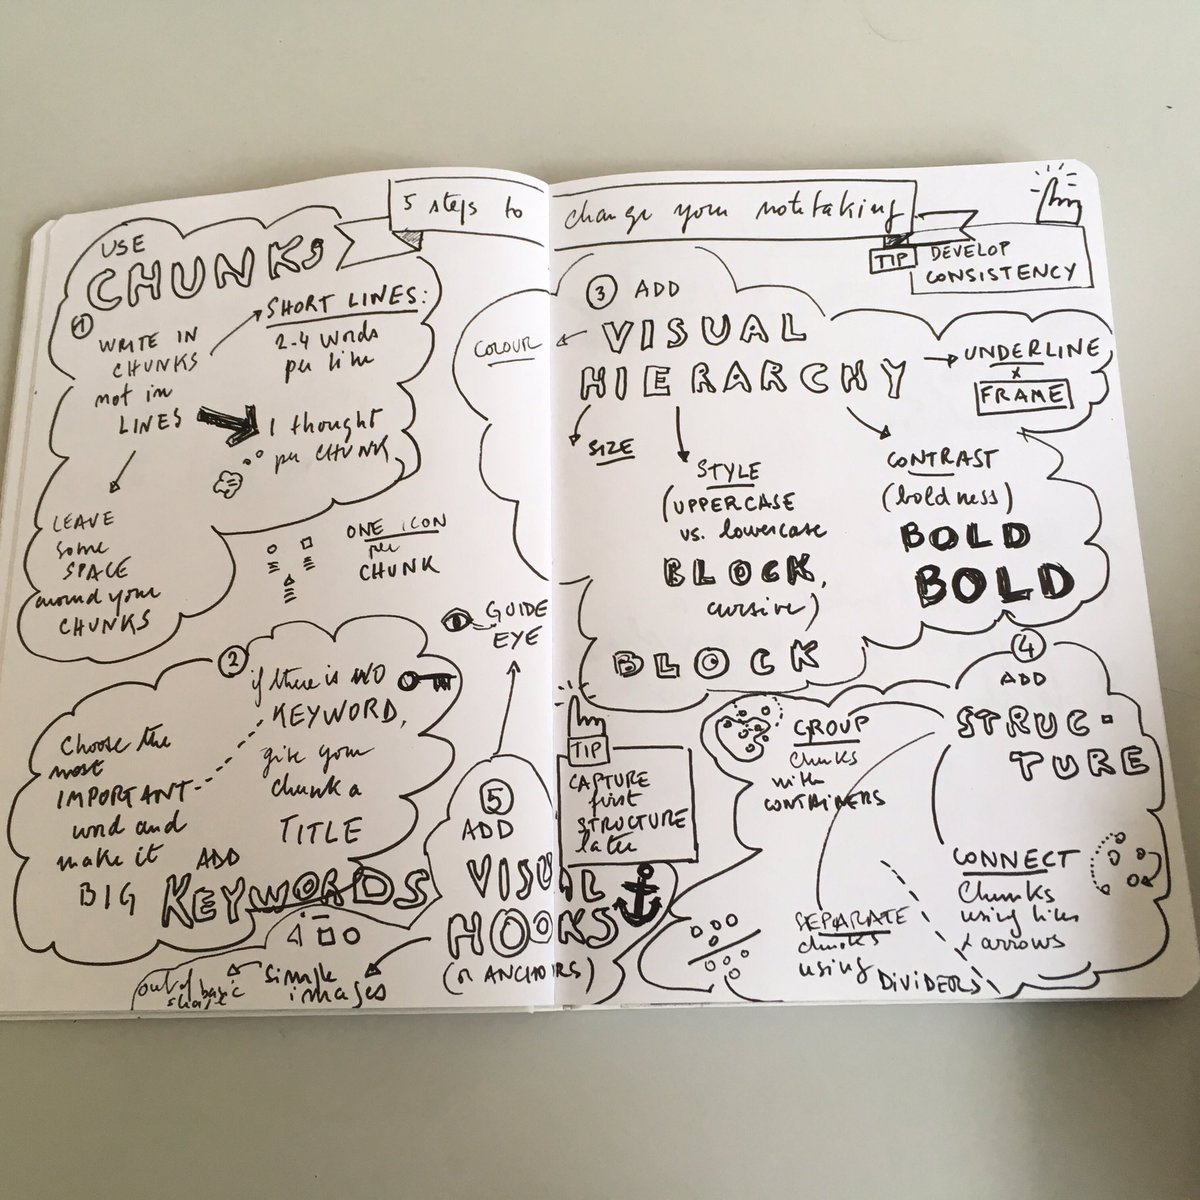 5 steps to change your notetaking
TIP
DEVELOP
CONSISTENCY
USE
CHUNKS
1
WRITE IN
CHUNKS
not in
LINES
SHORT LINES:
2-4 words
per line
1 thought
per CHUNK
LEAVE
some
SPACE
around your
CHUNKS
ONE ICON
per
CHUNK
2
if there is NO
KEYWORD,
give your
chunk a
TITLE
Choose the
most
IMPORTANT
word and
make it
BIG
ADD
KEYWORDS
3 ADD
VISUAL
HIERARCHY
COLOUR
SIZE
STYLE
(UPPERCASE
vs. lowercase
BLOCK,
cursive)
BLOCK
CONTRAST
(boldness)
BOLD
BOLD
UNDERLINE
FRAME
4
ADD
STRUC-
TURE
GROUP
chunks
with
CONTAINERS
CONNECT
Chunks
using lines
+ arrows
SEPARATE
chunks
using
DIVIDERS
TIP
CAPTURE
first
STRUCTURE
later
5
ADD
VISUAL
HOOKS
(or ANCHORS)
GUIDE
EYE
simple
images
out of basic
shape